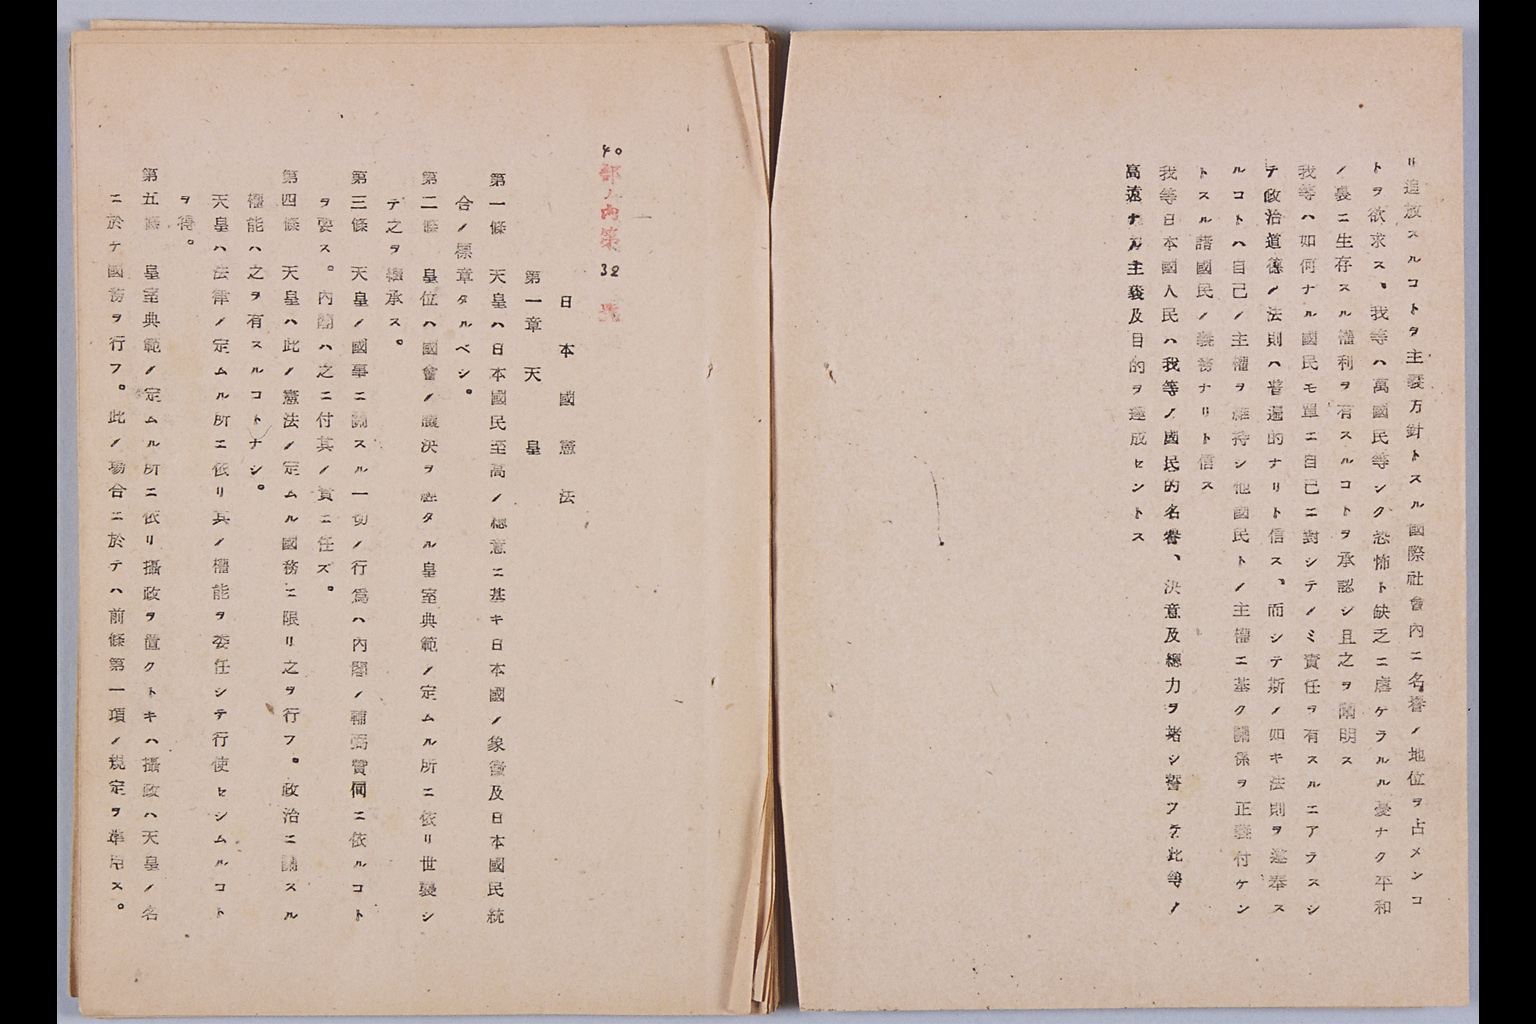 リ追放スルコトヲ主要方針トスル國際社會內ニ名譽ノ地位ヲ占メンコ
トヲ欲求ス、我等ハ萬國民等シク恐怖ト缺乏ニ虐ケラルル憂ナク平和
ノ裏ニ生存スル權利ヲ有スルコトヲ承認シ且之ヲ闡明ス
我等ハ如何ナル國民モ單ニ自己ニ對シテノミ責任ヲ有スルニアラスシ
テ政治道德ノ法則ハ普遍的ナリト信ス、而シテ斯ノ如キ法則ヲ遵奉ス
ルコトハ自己ノ主權ヲ維持シ他國民トノ主權ニ基ク關係ヲ正義付ケン
トスル諸國民ノ義務ナリト信ス
我等日本國人民ハ我等ノ國民的名譽、決意及總力ヲ堵シ誓ツテ此等ノ
高遠ナル主義及目的ヲ達成セントス
40部ノ內第32號
日本國憲法
第一章 天皇
第一條 天皇ハ日本國民至高ノ總意ニ基キ日本國ノ象徵及日本國民統
合ノ標章タルベシ。
第二條 皇位ハ國會ノ議決ヲ經タル皇室典範ノ定ムル所ニ依リ世襲シ
テ之ヲ繼承ス。
第三條 天皇ノ國事ニ關スル一切ノ行爲ハ內閣ノ輔弼賛同ニ依ルコト
ヲ要ス。內閣ハ之ニ付其ノ責ニ任ズ。
第四條 天皇ハ此ノ憲法ノ定ムル國務ニ限リ之ヲ行フ。政治ニ關スル
權能ハ之ヲ有スルコトナシ。
天皇ハ法律ノ定ムル所ニ依リ其ノ權能ヲ委任シテ行使セシムルコト
ヲ得。
第五條 皇室典範ノ定ムル所ニ依リ攝政ヲ置クトキハ攝政ハ天皇ノ名
ニ於テ國務ヲ行フ。此ノ場合ニ於テハ前條第一項ノ規定ヲ準用ス。